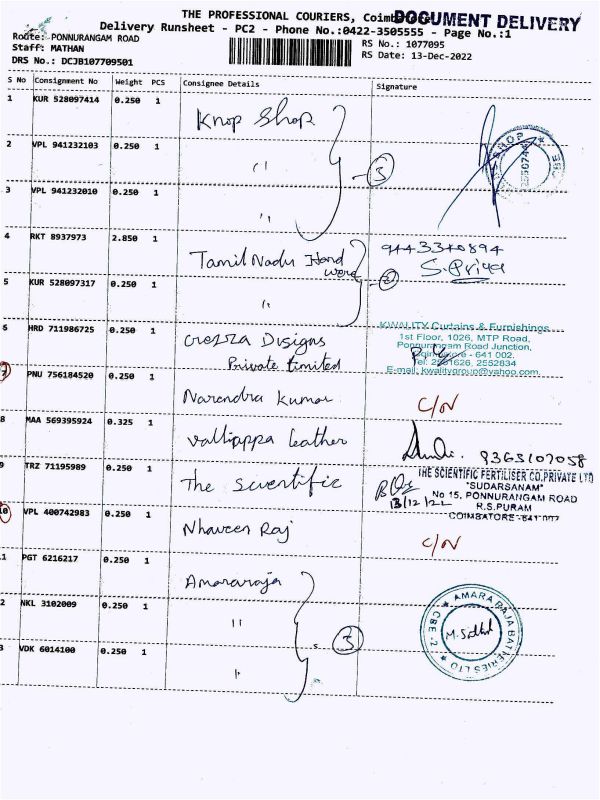 THE PROFESSIONAL COURIERS, Coimbatore
DOCUMENT DELIVERY
Delivery Runsheet - PC2 - Phone No.:0422-3505555 - Page No.:1
Route: PONNURANGAM ROAD
RS No.: 1077095
Staff: MATHAN
RS Date: 13-Dec-2022
DRS No.: DCJB107709501
S No Consignment No Weight PCS Consignee Details Signature
1 KUR 528097414 0.250 1 Knop Shop
2 VPL 941232103 0.250 1 "
3
3 VPL 941232010 0.250 1 "
4 RKT 8937973 2.850 1 Tamil Nadu Hand
S. Priya
5 KUR 528097317 0.250 1 "
KWALITY Curtains & Furnishings
6 HRD 711986725 0.250 1 Crezza Designs
Private Limited
1st Floor, 1026, MTP Road,
Ponnurangam Road Junction,
Coimbatore - 641 002.
Tel: 2551626, 2552834
E-mail: kwalitygroup@yahoo.com
7 PNU 756184520 0.250 1 Narendra Kumar C/N
8 MAA 569395924 0.325 1 Valliappa leather 9363107058
9 TRZ 71195989 0.250 1 The Scientific
THE SCIENTIFIC FERTILISER CO.PRIVATE LTD
"SUDARSANAM"
No 15, PONNURANGAM ROAD
13/12/22
R.S.PURAM
COIMBATORE-641002
10 VPL 400742983 0.250 1 Nhaveen Raj C/N
1 PGT 6216217 0.250 1 Amararaja
2 NKL 3102009 0.250 1 "
3
AMARA RAJA BATTERIES LTD
CBE-2
3 VDK 6014100 0.250 1 "